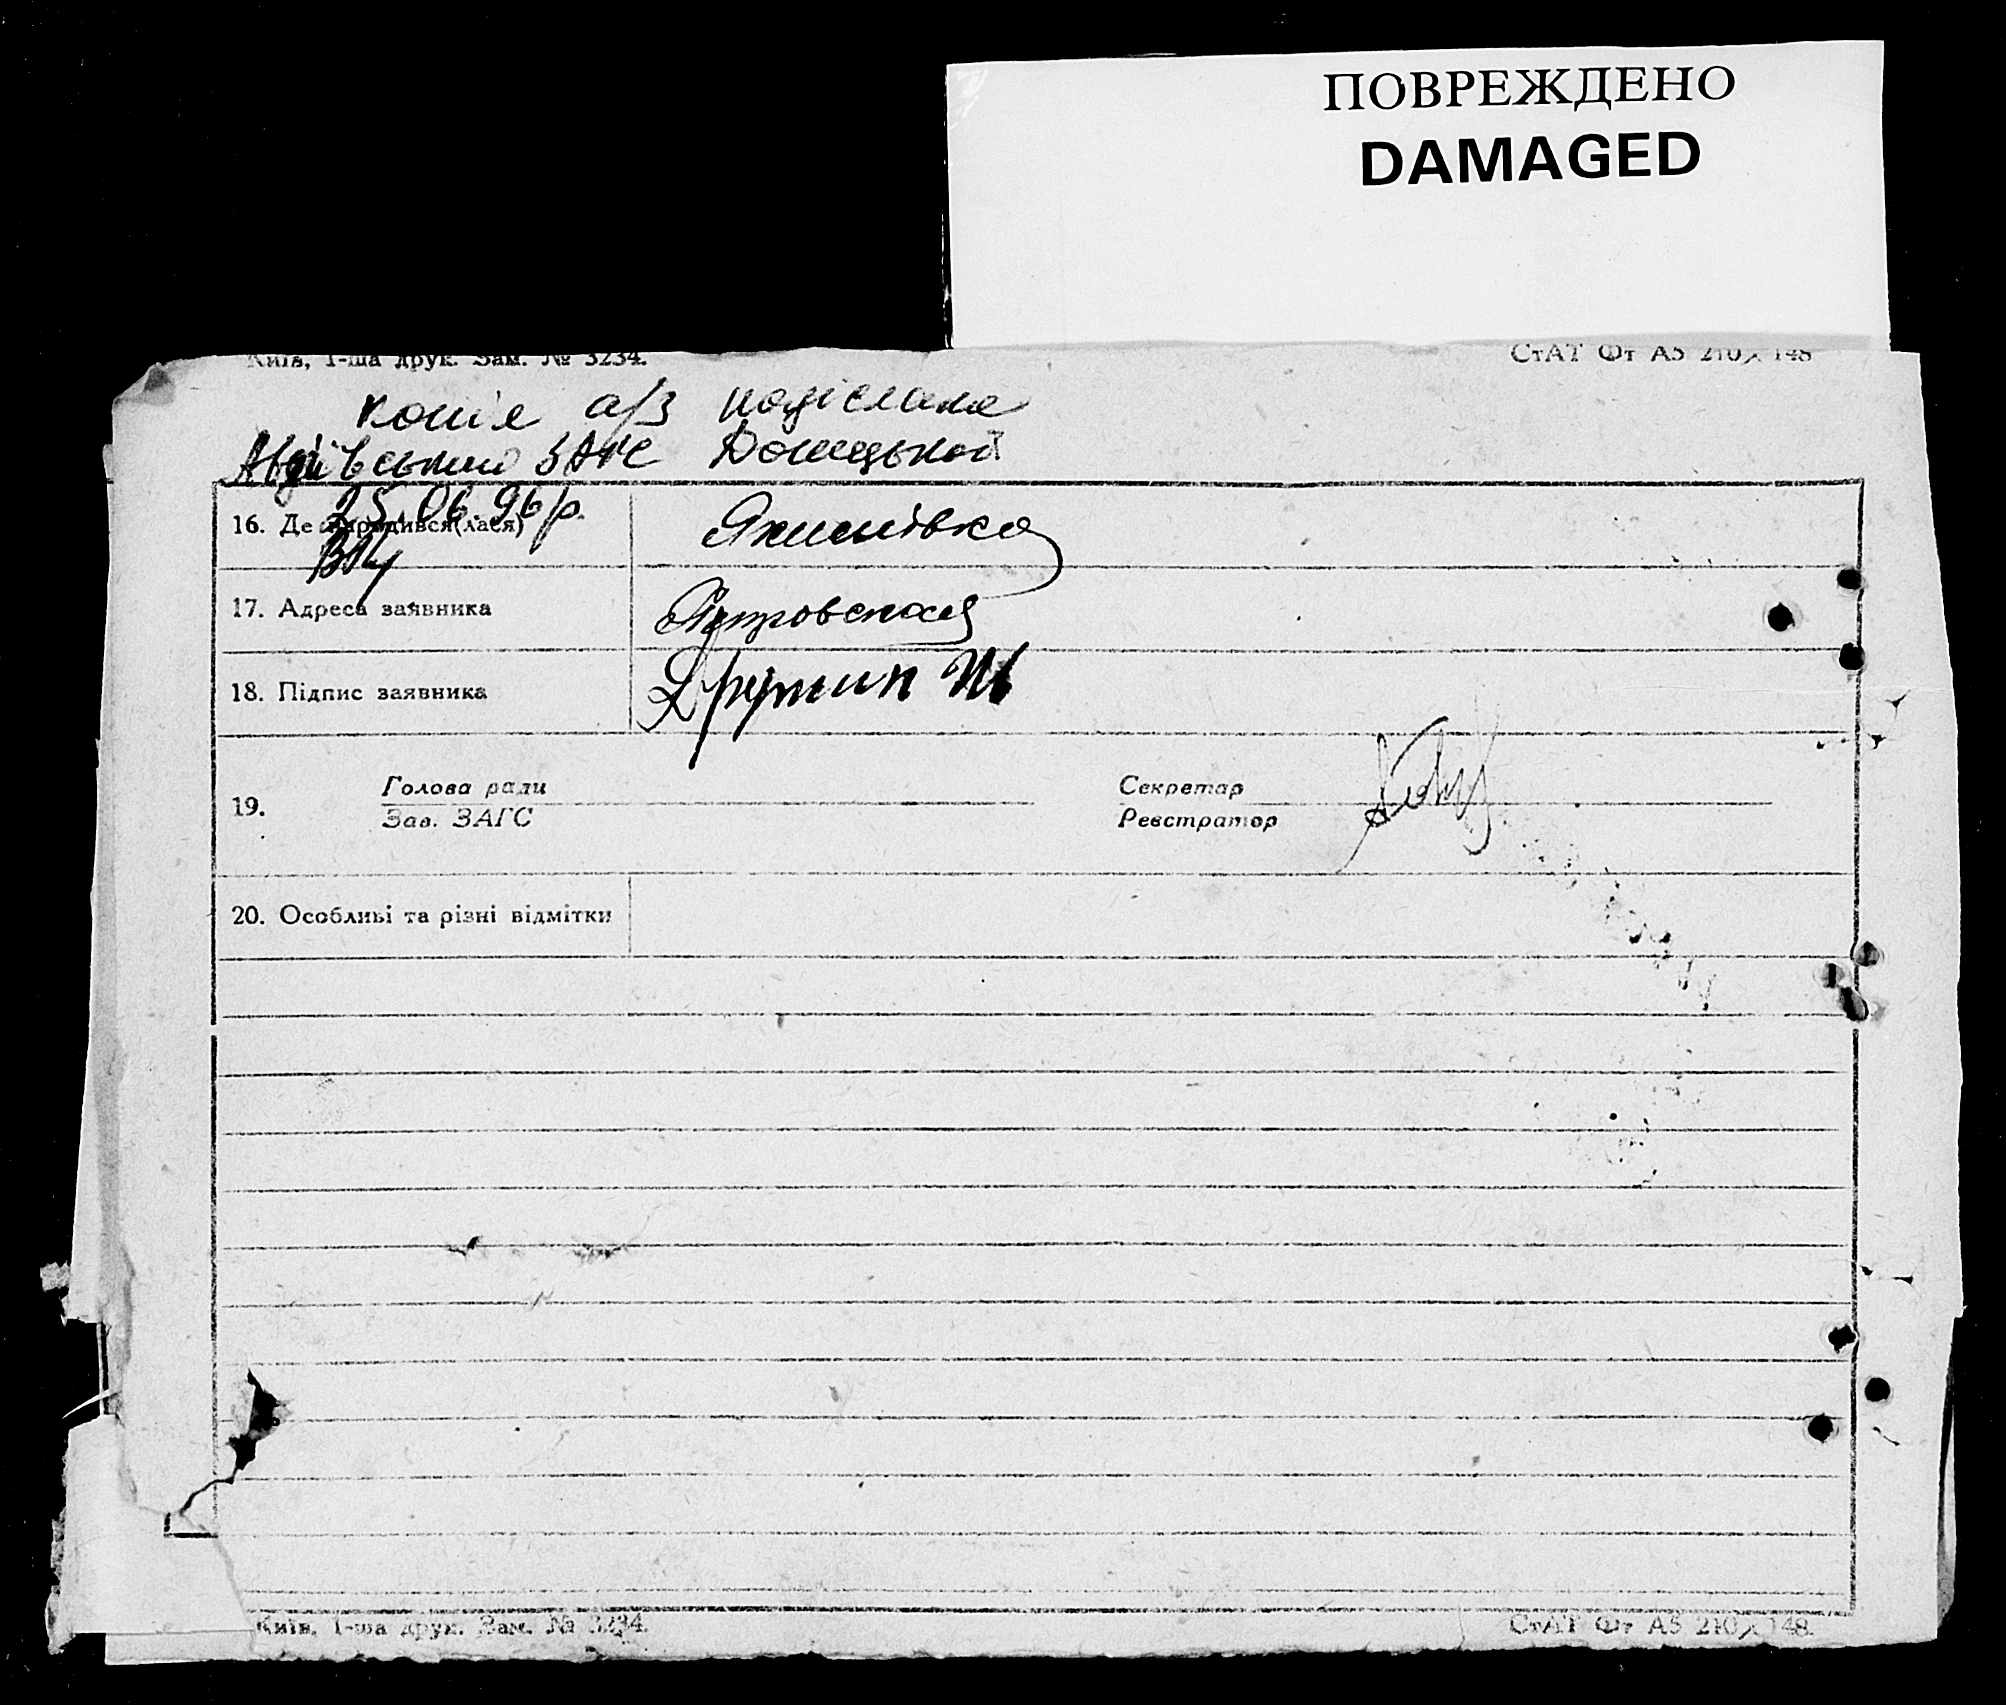 ПОВРЕЖДЕНО
DAMAGED
Київ, 1-ша друк. Зам. № 3234.
СтАТ Фт А5 210×148
копія а/з надіслана
Авдіївський ЗАГС Донецькой
25.06.96 р.
16. Де народився(лася)
Якимівка
17. Адреса заявника
Петровская
18. Підпис заявника
19.
Голова ради
Зав. ЗАГС
Секретар
Реєстратор
20. Особливі та різні відмітки
Київ, 1-ша друк. Зам. № 3234.
СтАТ Фт А5 210×148.